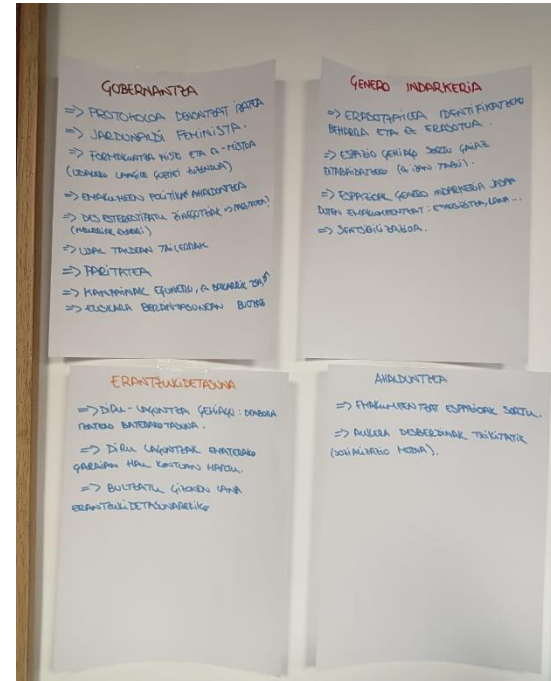 GOBERNANTZA
=> PROTOKOLOA DENONTZAT IZATEA
=> JARDUNALDI FEMINISTA.
=> FORMAKUNTZA MISTO ETA EZ-MISTOA
(UDALEKO LANGILE GUZTIEI ZUZENDUA)
=> EMAKUMEEN POLITIKA AHALDUNTZEA
=> DES ESTEREOTIPATU ZINEGOTZIAK => PARITATEA!
=> UDAL TALDEAN TAILERRAK
=> PARITATEA
=> KANPAINAK EGUNERO, EZ BAKARRIK
=> EUSKARA BERDINTASUNEAN
GENERO INDARKERIA
=> ERASOTZAILEA IDENTIFIKATZEKO
BEHARRA ETA EZ ERASOTUA.
=> ESPAZIO GEHIAGO SORTU GAIAZ
EZTABAIDATZEKO (EZ IZAN TABU).
=> ESPAZIOAK GENERO INDARKERIA JASAN
DUTEN EMAKUMEENTZAT: ETXEBIZITZA, LANA...
=> SENTSIBILIZAZIOA.
ERANTZUKIDETASUNA
=> DIRU-LAGUNTZA GEHIAGO: DENBORA
IZATEKO BATERAKOTASUNA.
=> DIRU LAGUNTZAK EMATERAKO
GARAIAN HAU KONTUAN HARTU.
=> BULTZATU GIZONEN LANA
ERANTZUKIDETASUNAREKIKO
AHALDUNTZEA
=> EMAKUMEENTZAT ESPAZIOAK SORTU.
=> AUKERA DESBERDINAK TXIKITATIK
(SOZIALIZAZIO MODUA).